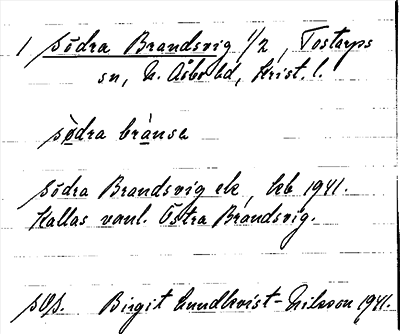 1 Södra Brandsvig 1/2, Tostarps
sn, N. Åsbo hd, Krist. l.
södra bränsa
Södra Brandsvig ek, hb 1941.
Kallas vanl. Östra Brandsvig.
Birgit Lundkvist-Nilsson 1941.